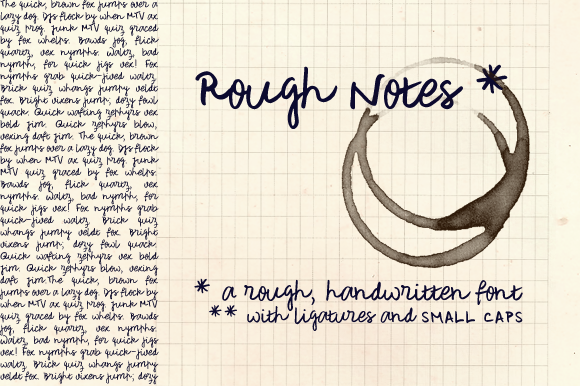 The quick, brown fox jumps over a
lazy dog. DJs flock by when MTV ax
quiz prog. Junk MTV quiz graced
by fox whelps. Bawds jog, flick
quartz, vex nymphs. Waltz, bad
nymph, for quick jigs vex! Fox
nymphs grab quick-jived waltz.
Brick quiz whangs jumpy veldt
fox. Bright vixens jump; dozy fowl
quack. Quick wafting zephyrs vex
bold Jim. Quick zephyrs blow,
vexing daft Jim. The quick, brown
fox jumps over a lazy dog. DJs flock
by when MTV ax quiz prog. Junk
MTV quiz graced by fox whelps.
Bawds jog, flick quartz, vex
nymphs. Waltz, bad nymph, for
quick jigs vex! Fox nymphs grab
quick-jived waltz. Brick quiz
whangs jumpy veldt fox. Bright
vixens jump; dozy fowl quack.
Quick wafting zephyrs vex bold
Jim. Quick zephyrs blow, vexing
daft Jim.The quick, brown fox
jumps over a lazy dog. DJs flock by
when MTV ax quiz prog. Junk MTV
quiz graced by fox whelps. Bawds
jog, flick quartz, vex nymphs.
Waltz, bad nymph, for quick jigs
vex! Fox nymphs grab quick-jived
waltz. Brick quiz whangs jumpy
veldt fox. Bright vixens jump; dozy
Rough Notes *
* a rough, handwritten font
** with ligatures and SMALL CAPS